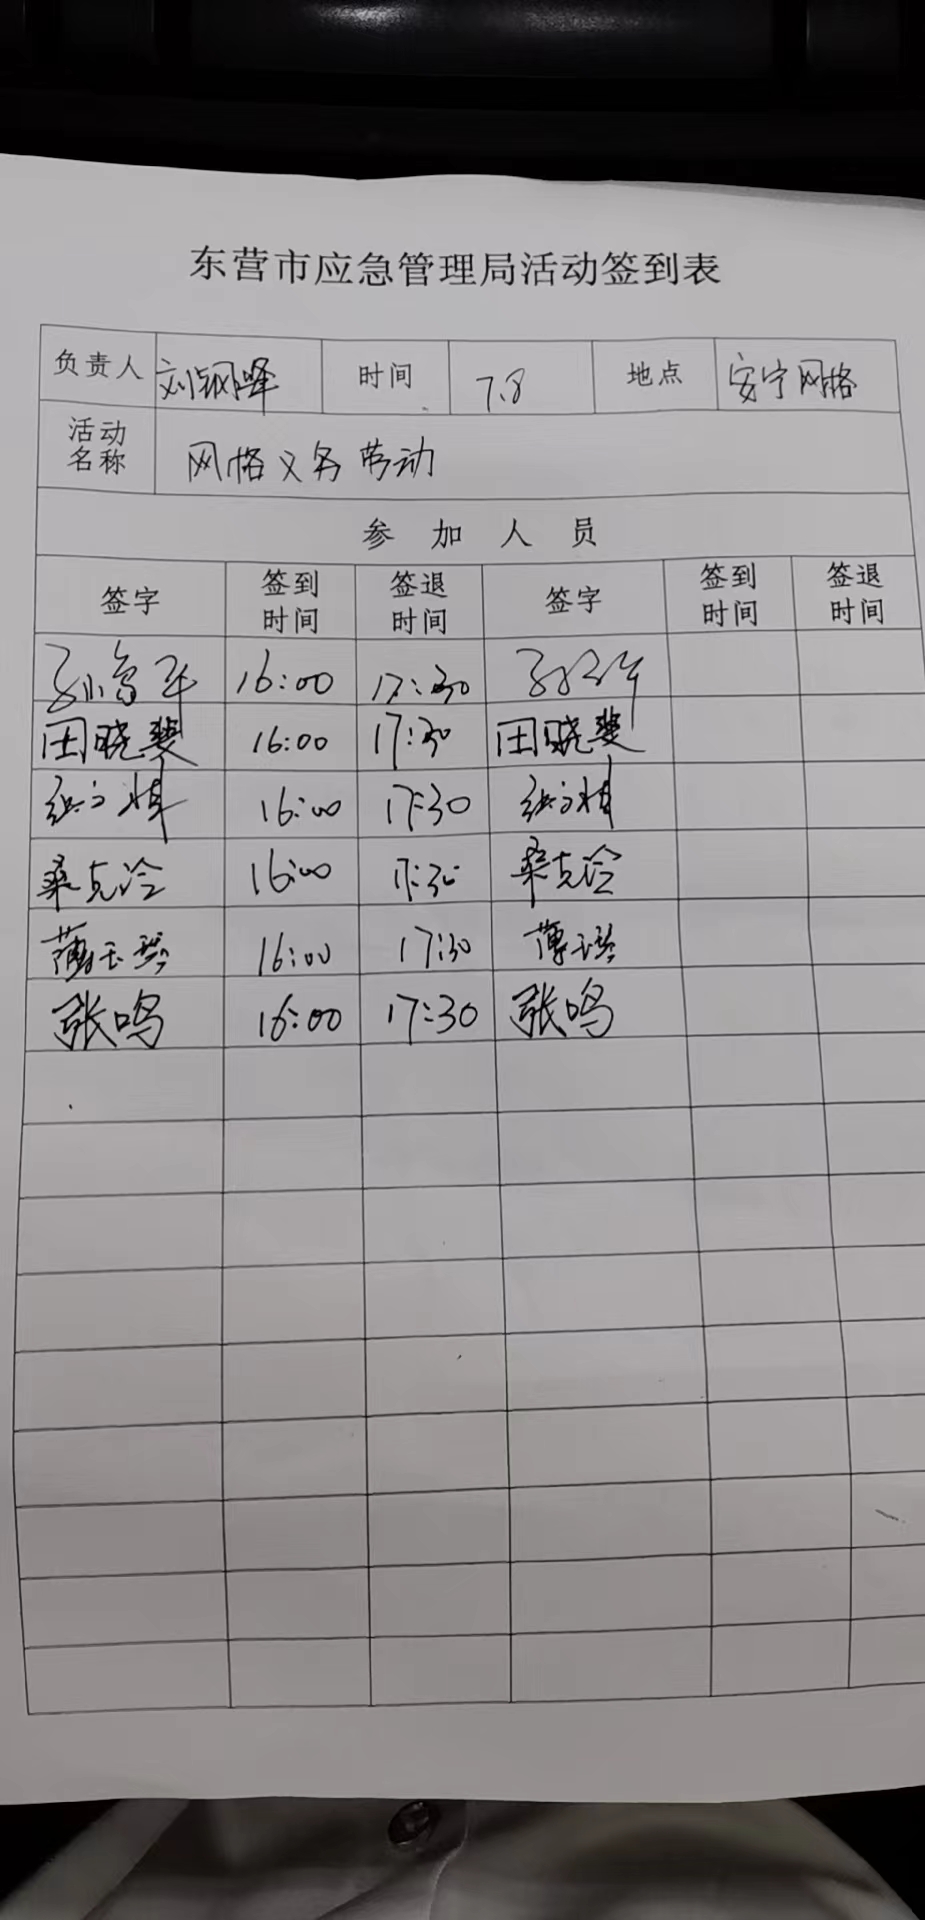 东营市应急管理局活动签到表
负责人 刘 峰 时间 7.8 地点 安宁网格
活动名称 网格义务劳动
参加人员
签字 签到时间 签退时间 签字 签到时间 签退时间
16:00 17:30
田晓斐 16:00 17:30 田晓斐
16:00 17:30
桑克冷 16:00 17:30 桑克冷
薄玉琴 16:00 17:30 薄玉琴
张鸣 16:00 17:30 张鸣